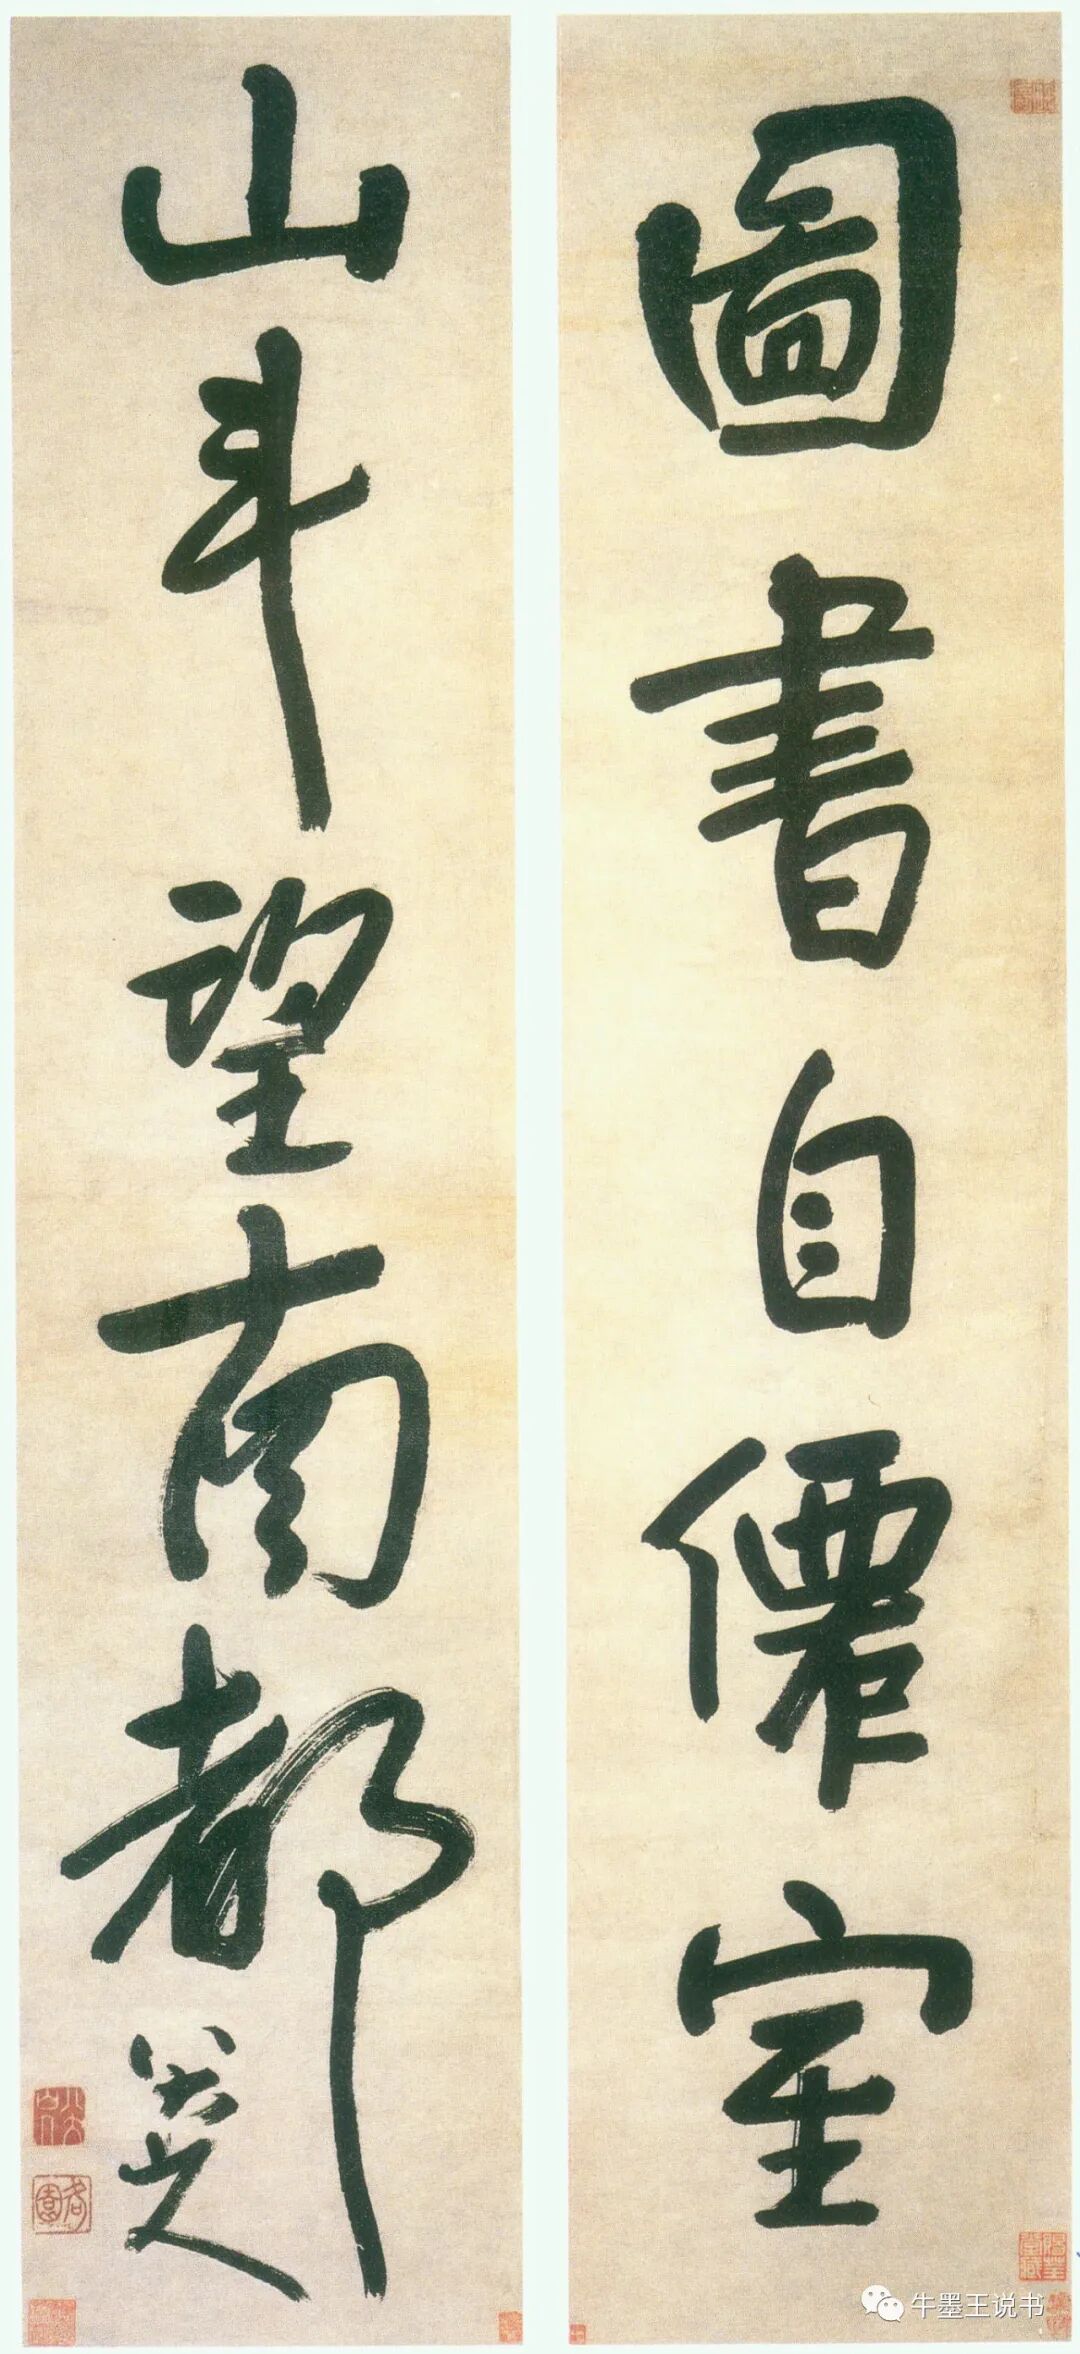 圖書自僊室
山斗望南都
八大山人
牛墨王说书